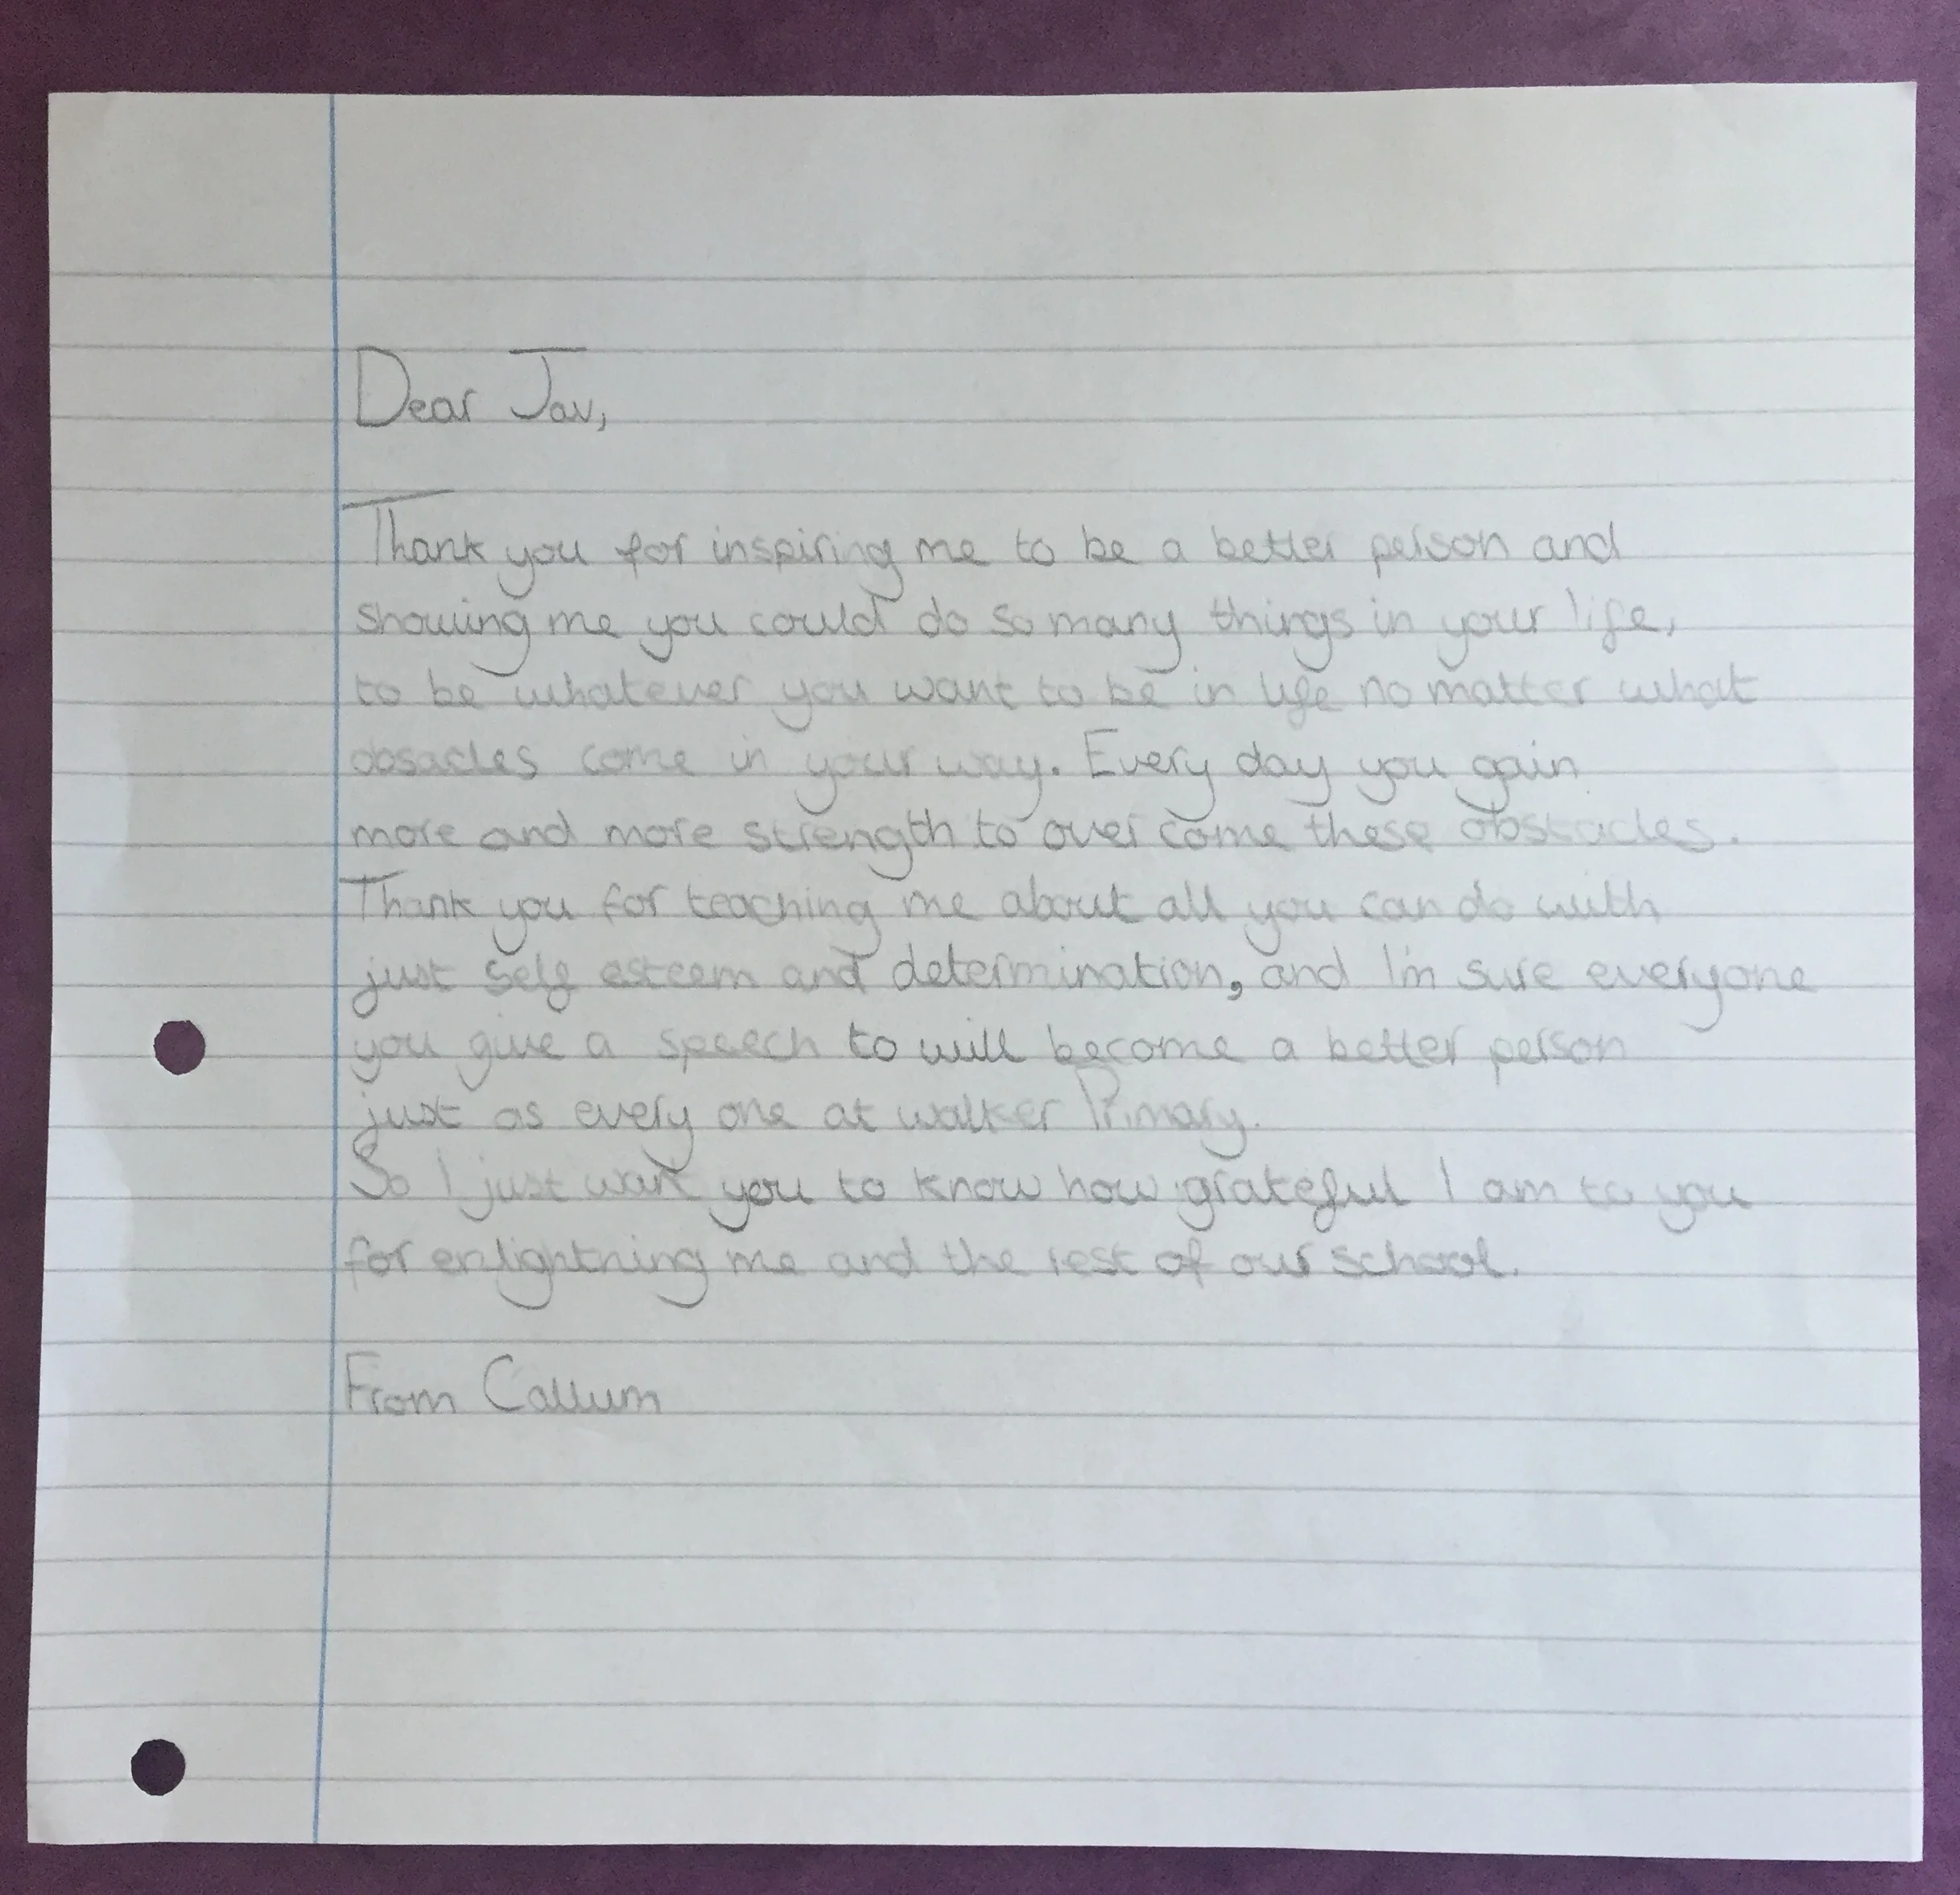 Dear Jav,
Thank you for inspiring me to be a better person and
showing me you could do so many things in your life,
to be whatever you want to be in life no matter what
obsacles come in your way. Every day you gain
more and more strength to over come these obstacles.
Thank you for teaching me about all you can do with
just self esteem and determination, and I'm sure everyone
you give a speech to will become a better person
just as every one at walker Primary.
So I just want you to know how grateful I am to you
for enlightning me and the rest of our school.
From Callum